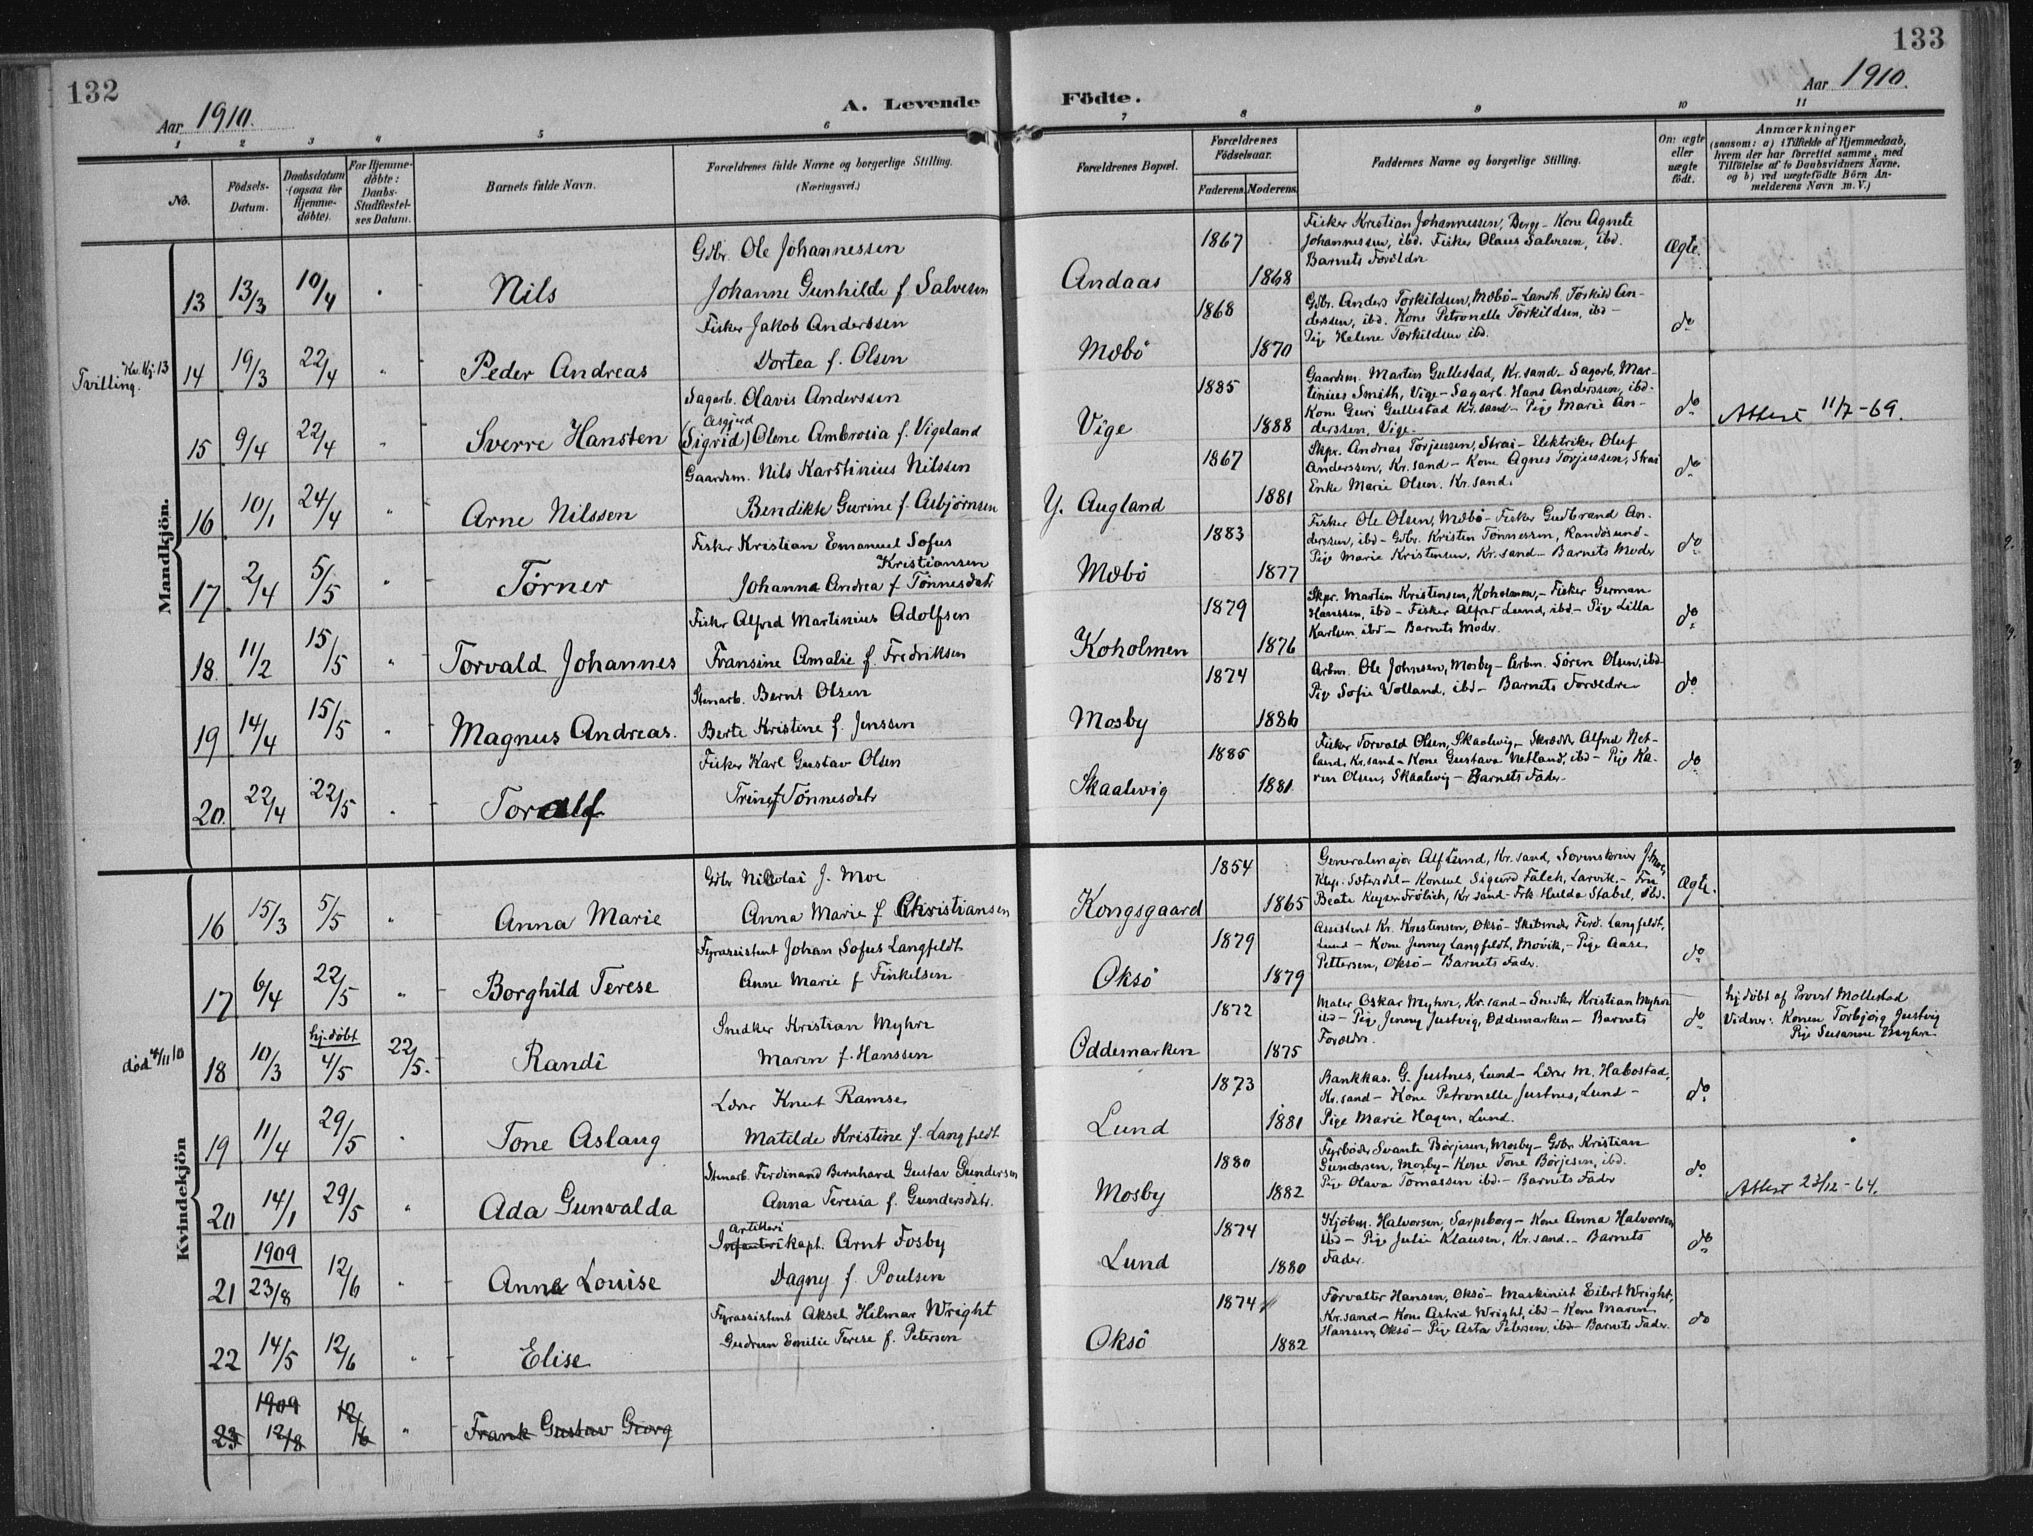 132
133
Aar 1910.
A. Levende Födte.
Aar 1910.
1 2 3 4 5 6 7 8 9 10 11
No.
Födsels-Datum.
Daabsdatum (ogsaa for Hjemmedöbte).
For Hjemmedöbte: Daabs-Stadfæstelses Datum.
Barnets fulde Navn.
Forældrenes fulde Navne og borgerlige Stilling.
(Næringsvei.)
Forældrenes Bopæl.
Forældrenes Födselsaar.
Faderens. Moderens.
Faddernes Navne og borgerlige Stilling.
Om ægte eller uægte födt.
Anmærkninger
(saasom: a) i Tilfælde af Hjemmedaab, hvem der har forrettet samme, med Tilföielse af to Daabsvidners Navne, og b) ved uægtefödte Börn Anmelderens Navn m. V.)
Mandkjön.
13 13/3 10/4 " Nils
Gdbr. Ole Johannessen
Johanne Gunhilde f. Salvesen
Andaas 1867 1868
Fisker Kristian Johannessen, Berg - Kone Agnete
Johannessen, ibd. Fisker Olaus Salvesen, ibd.
Barnets Forældre
Ægte.
Tvilling. Kv.kj. 13
14 19/3 22/4 " Peder Andreas
Fisker Jakob Anderssen
Dortea f. Olsen
Mæbö 1868 1870
Gdbr. Anders Torkildsen, Mæbö - Landh. Torkild An-
derssen, ibd. Kone Petronelle Torkildsen, ibd -
Pige Helene Torkildsen ibd.
do
15 9/4 22/4 " Sverre Hansten
Sagarb. Olavis Anderssen
Asgjerd
(Sigrid) Olene Ambrosia f. Vigeland
Vige 1885 1888
Gaardsm. Martin Gullestad, Kr.sand - Sagarb. Mar-
tinius Smith, Vige - Sagarb. Hans Anderssen, ibd -
Kone Guri Gullestad Kr.sand - Pige Marie An-
derssen, Vige -
do
Attest 11/7-69.
16 10/1 24/4 " Arne Nilssen
Gaardsm. Nils Karstinius Nilssen
Bendikte Gurine f. Asbjørnsen
Y. Augland 1867 1881
Skpr. Andreas Torjussen, Strai - Elektriker Oluf
Anderssen, Kr.sand - Kone Agnes Torjussen, Strai
Enke Marie Olsen. Kr.sand.
do
17 2/4 5/5 " Törner
Fisker Kristian Emanuel Sofus
Kristiansen
Johanna Andrea f. Tönnesdatr
Mæbö 1883 1877
Fisker Ole Olsen, Mæbö - Fisker Gudbrand An-
derssen, ibd - Gdbr. Kristen Tönnessen, Randösund -
Pige Marie Kristensen, Kr.sand - Barnets Moder
do
18 11/2 15/5 " Torvald Johannes
Fisker Alfred Martinius Adolfsen
Fransine Amalie f. Fredriksen
Koholmen 1879 1876
Skpr. Martin Kristensen, Koholmen, - Fisker German
Hanssen, ibd - Fisker Alfred Lund, ibd - Pige Lilla
Karlsen, ibd - Barnets Moder.
do
19 14/4 15/5 " Magnus Andreas.
Stenarb. Bernt Olsen
Berte Kristine f. Jenssen
Mosby 1874 1886
Arbm. Ole Johnsen, Mosby - Arbm. Sören Olsen, ibd
Pige Sofie Volland, ibd - Barnets Forældre
do
20 22/4 22/5 " Toralf
Fisker Karl Gustav Olsen
Trine f. Tönnesdatr
Skaalevig 1885 1881
Fisker Torvald Olsen, Skaalevig - Skrædr. Alfred Net-
land, Kr.sand - Kone Gustava Netland, ibd - Pige Ka-
ren Olsen, Skaalevig - Barnets Fader.
do
Kvindekjön
16 15/3 5/5 " Anna Marie
Gdbr Nikolai J. Moe
Anna Marie f. Christiansen
Kongsgaard 1854 1865
Generalmajor Alf Lund, Kr.sand, Sorenskriver J. Moe,
Klep. Sætersdal - Konsul Sigurd Falck, Larvik, - Fru
Beate Keyser Frölich, Kr.sand - Frk Hulda Stabel, ibd.
Ægte.
17 6/4 22/5 " Borghild Terese
Fyrassistent Johan Sofus Langfeldt
Anne Marie f. Finkelsen
Oksö 1879 1879
Assistent Kr. Kristensen, Oksö - Skibsreder Ferd. Langfeldt,
Lund - Kone Jenny Langfeldt, Movik, - Pige Aase
Pettersen, Oksö - Barnets Fader.
do
död 4/11 10
18 10/3 hj.døbt 4/5 22/5. Randi
Snedker Kristian Myhre
Maren f. Hanssen
Oddemarken 1872 1875
Maler Oskar Myhre, Kr.sand - Snedker Kristian Myhre
ibd - Pige Jenny Justvig, Oddemarken - Barnets
Forældre.
do
hj.døbt af Provst Mollestad
Vidner: Konen Torbjörg Justvig
Pige Susanne Myhre
19 11/4 29/5 " Tone Aslaug
Lærer Knut Ramse
Matilde Kristine f. Langfeldt
Lund 1873 1881
Bankkas. G. Justnes, Lund - Lærer M. Habostad,
Kr.sand - Kone Petronelle Justnes, Lund -
Pige Marie Hagen, Lund.
do
20 14/1 29/5 " Ada Gunvalda
Stenarb. Ferdinand Bernhard Gustav Gundersen
Anna Teresia f. Gundersdatr.
Mosby 1880 1882
Fyrbøder Svante Börjesen, Mosby - Gdbr Kristian
Gundersen, Mosby - Kone Tone Börjesen, ibd.
Pige Olava Tomassen ibd - Barnets Fader
do
Attest 23/12-64.
21 1909 23/8 12/6 " Anne Louise
Artilleri
Infanterikapt. Arnt Fosby
Dagny f. Poulsen
Lund 1874 1880
Kjøbm. Halvorsen, Sarpsborg - Kone Anna Halvorsen
ibd - Pige Julie Klausen, Kr.sand. - Barnets
Fader.
do
22 14/5 12/6 " Elise
Fyrassistent Aksel Hilmar Wright
Gudrun Emilie Terese f. Petersen
Oksö 1874 1882
Forvalter Hansen, Oksö - Maskinist Eilert Wright,
Kr.sand - Kone Astrid Wright, ibd - Kone Maren
Hansen, Oksö - Pige Asta Petersen, ibd - Barnets Fader
do
23 1909 12/8 12/6 " Frank Gustav Georg